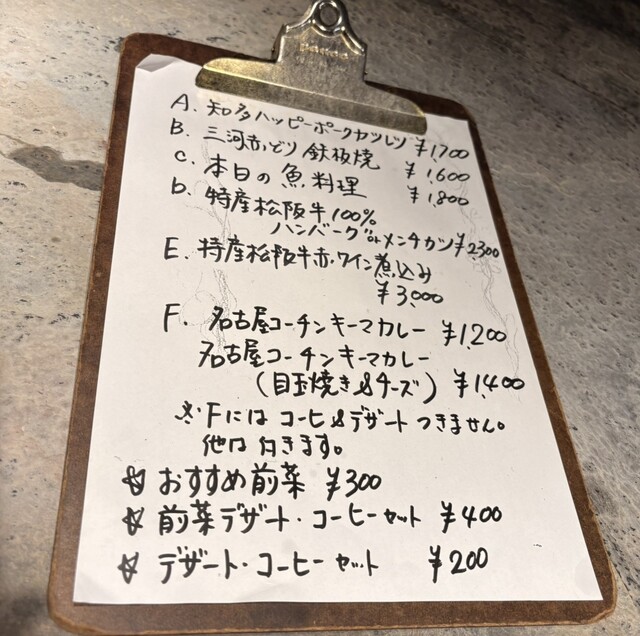 A. 知多ハッピーポークカツレツ ¥1,700
B. 三河赤どり 鉄板焼 ¥1,600
C. 本日の魚料理 ¥1,800
D. 特産松阪牛100%
ハンバーグ or メンチカツ ¥2,300
E. 特産松阪牛赤ワイン煮込み
¥3,000
F. 名古屋コーチンキーマカレー ¥1,200
名古屋コーチンキーマカレー
(目玉焼き&チーズ) ¥1,400
※Fにはコーヒ&デザートつきません。
他は付きます。
☆ おすすめ前菜 ¥300
☆ 前菜デザート・コーヒーセット ¥400
☆ デザート・コーヒーセット ¥200